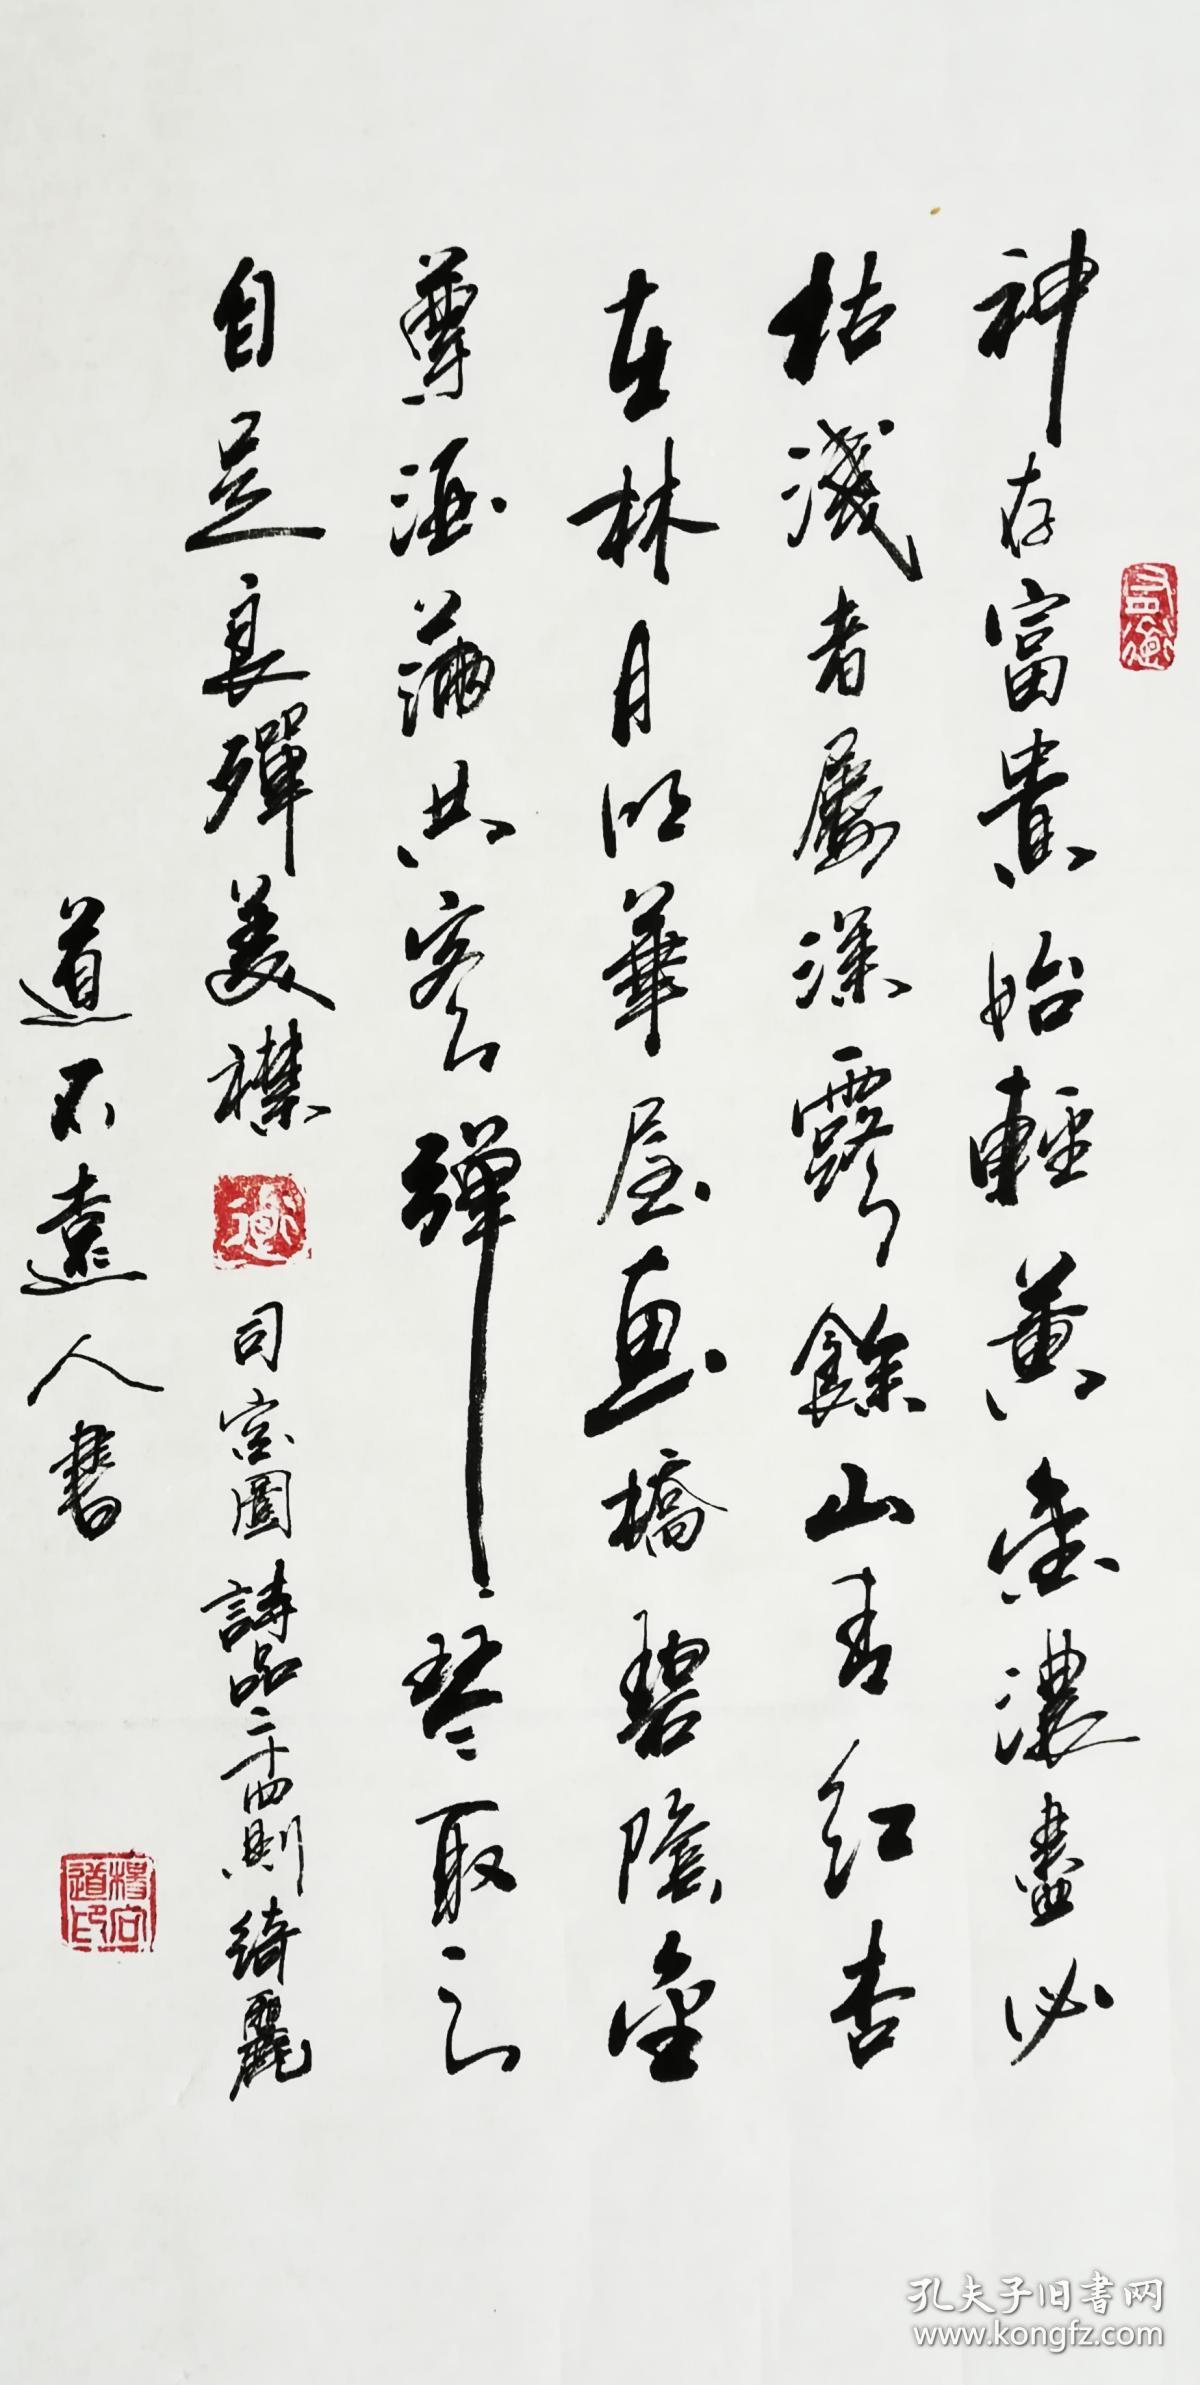 神存富貴始輕黃金濃盡必
枯淺者屢深露餘山青紅杏
在林月明華屋畫橋碧陰金
尊酒滿共客彈琴取之
自足良殫美襟
司空圖詩品二十四則綺麗
道不遠人書
楊向道印
孔夫子旧书网
www.kongfz.com